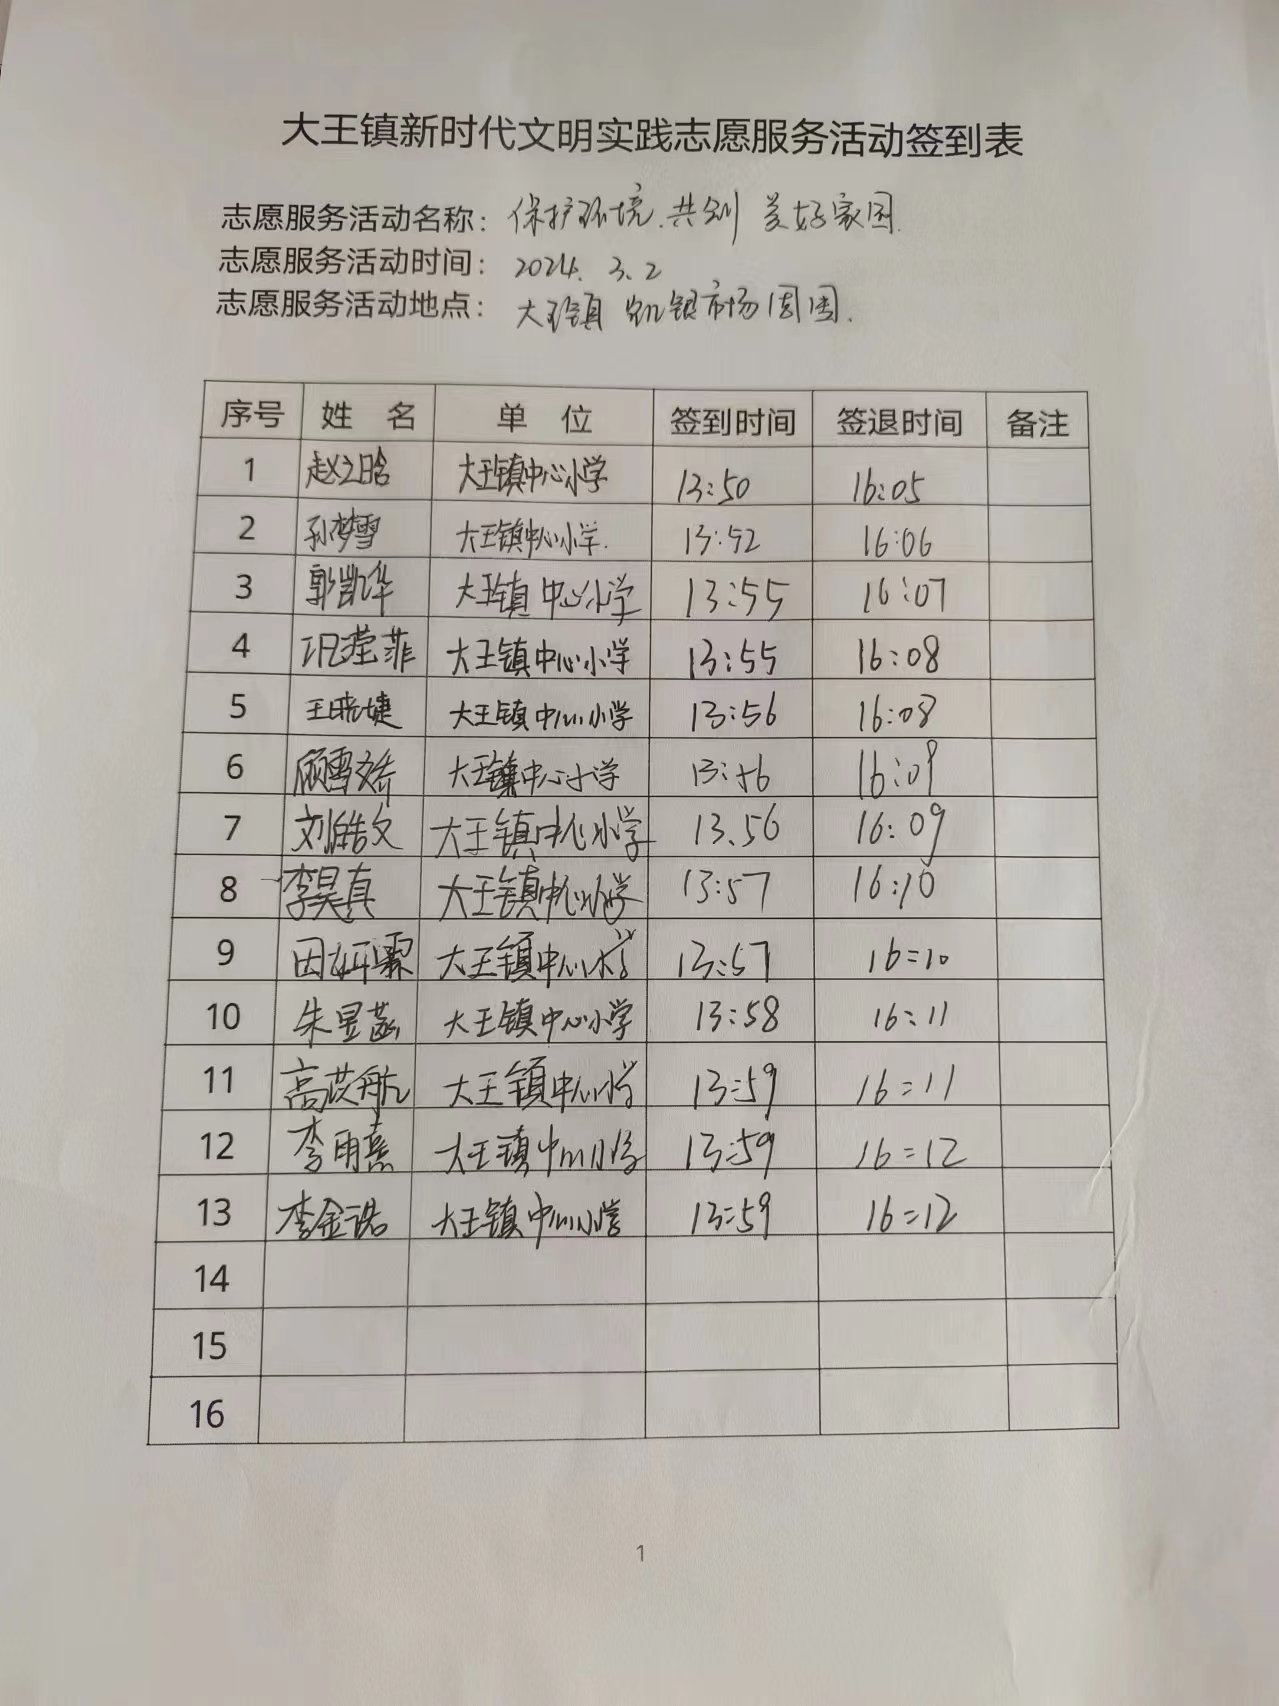 大王镇新时代文明实践志愿服务活动签到表
志愿服务活动名称：保护环境.共创 美好家园.
志愿服务活动时间：2024. 3. 2
志愿服务活动地点：大王镇 市场周围.
序号 姓 名 单 位 签到时间 签退时间 备注
1 赵之晗 大王镇中心小学 13:50 16:05
2 孙梦雪 大王镇中心小学. 13:52 16:06
3 郭凯华 大王镇中心小学 13:55 16:07
4 大王镇中心小学 13:55 16:08
5 王晓婕 大王镇中心小学 13:56 16:08
6 顾雪娇 大王镇中心小学 13:56 16:09
7 刘皓文 大王镇中心小学 13.56 16:09
8 李昊真 大王镇中心小学 13:57 16:10
9 大王镇中心小学 13:57 16=10
10 朱昱菡 大王镇中心小学 13:58 16:11
11 高苡航 大王镇中心小学 13:59 16=11
12 李雨熹 大王镇中心小学 13:59 16=12
13 李金诺 大王镇中心小学 13:59 16=12
14
15
16
1